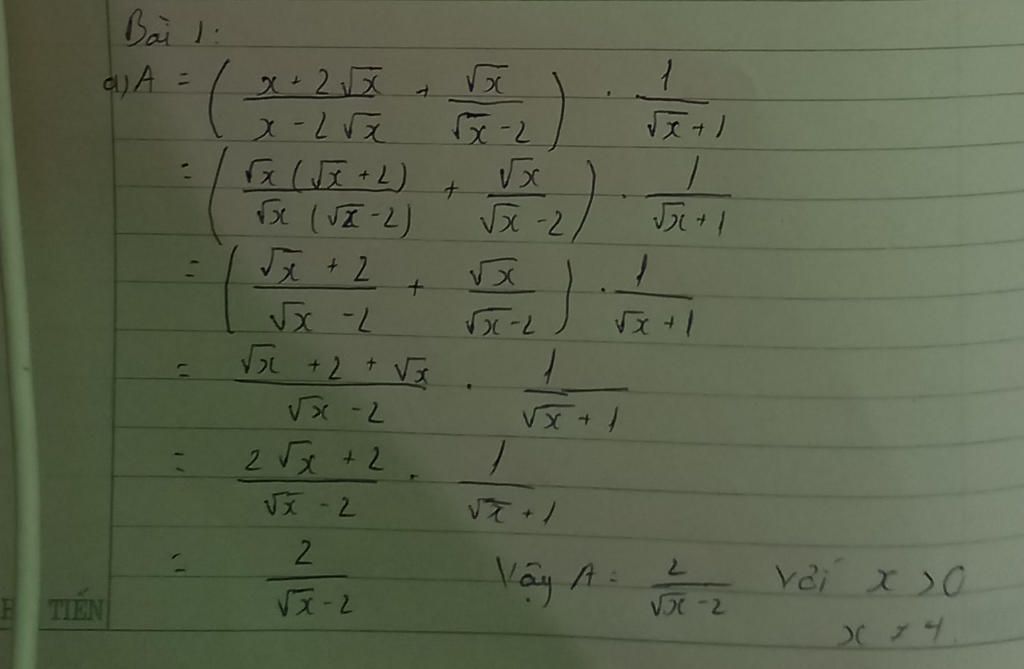 Bài 1:
a) A = ( (x + 2√x)/(x - 2√x) + √x/(√x - 2) ) . 1/(√x + 1)
= ( √x(√x + 2)/√x(√x - 2) + √x/(√x - 2) ) . 1/(√x + 1)
= ( (√x + 2)/(√x - 2) + √x/(√x - 2) ) . 1/(√x + 1)
= (√x + 2 + √x)/(√x - 2) . 1/(√x + 1)
= (2√x + 2)/(√x - 2) . 1/(√x + 1)
= 2/(√x - 2) Vậy A = 2/(√x - 2) với x > 0
x ≠ 4
TIẾN